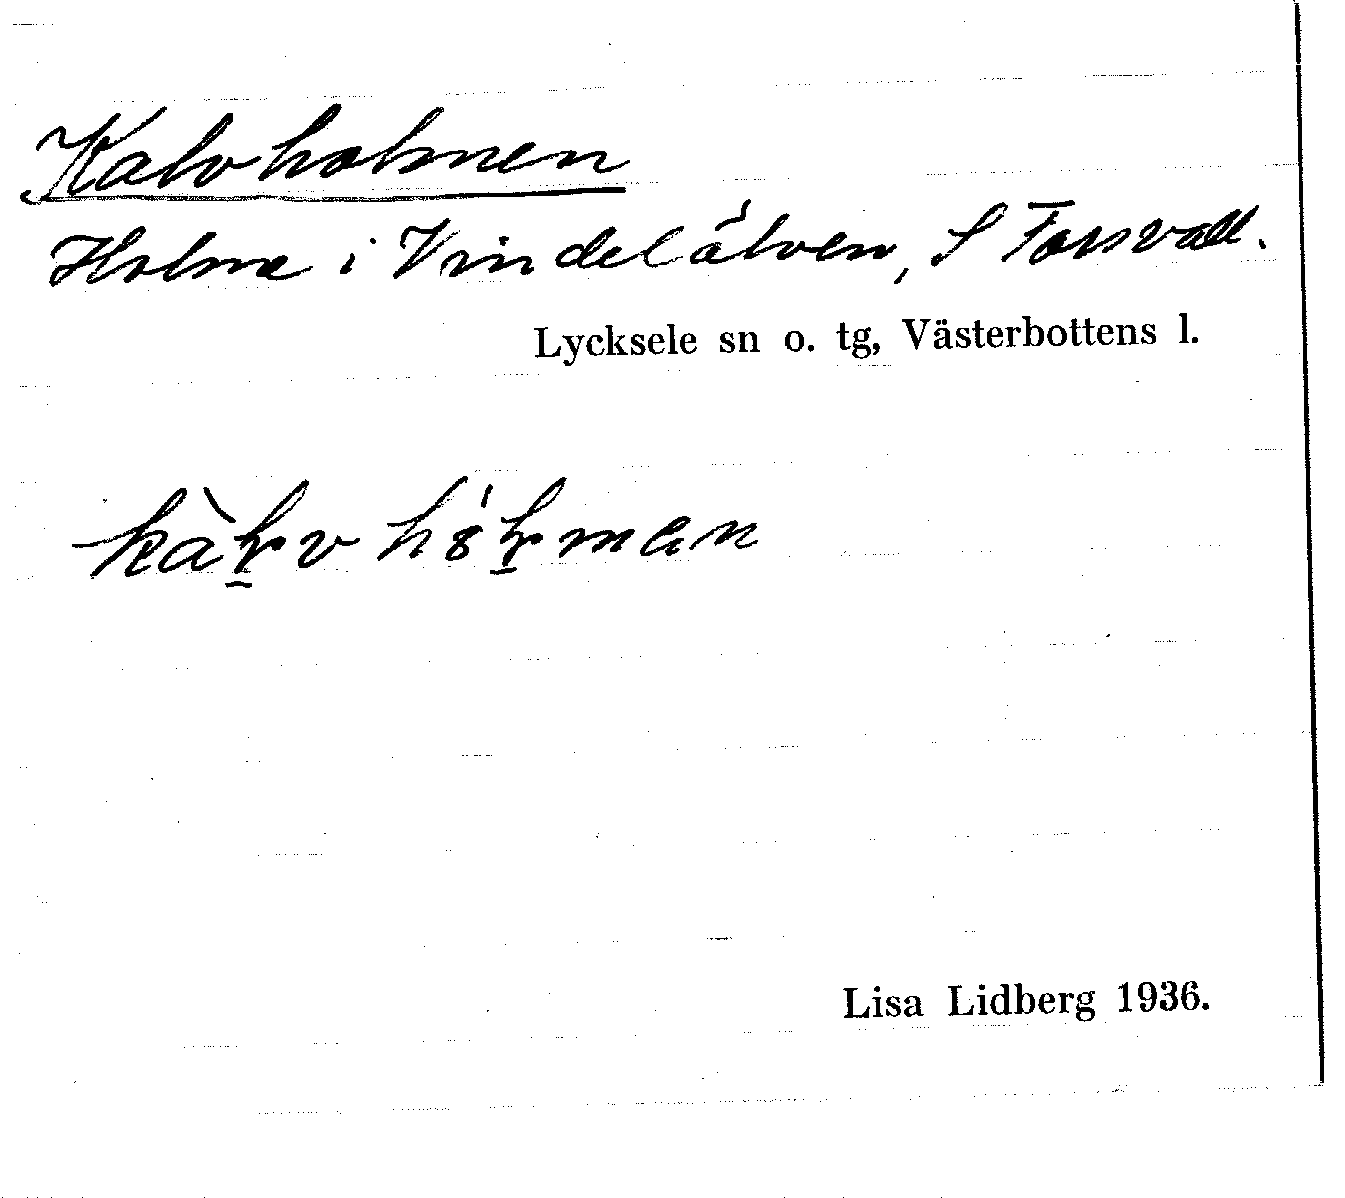 Kalvholmen
Holme i Vindelälven, S Forsvall.
Lycksele sn o. tg, Västerbottens l.
Lisa Lidberg 1936.